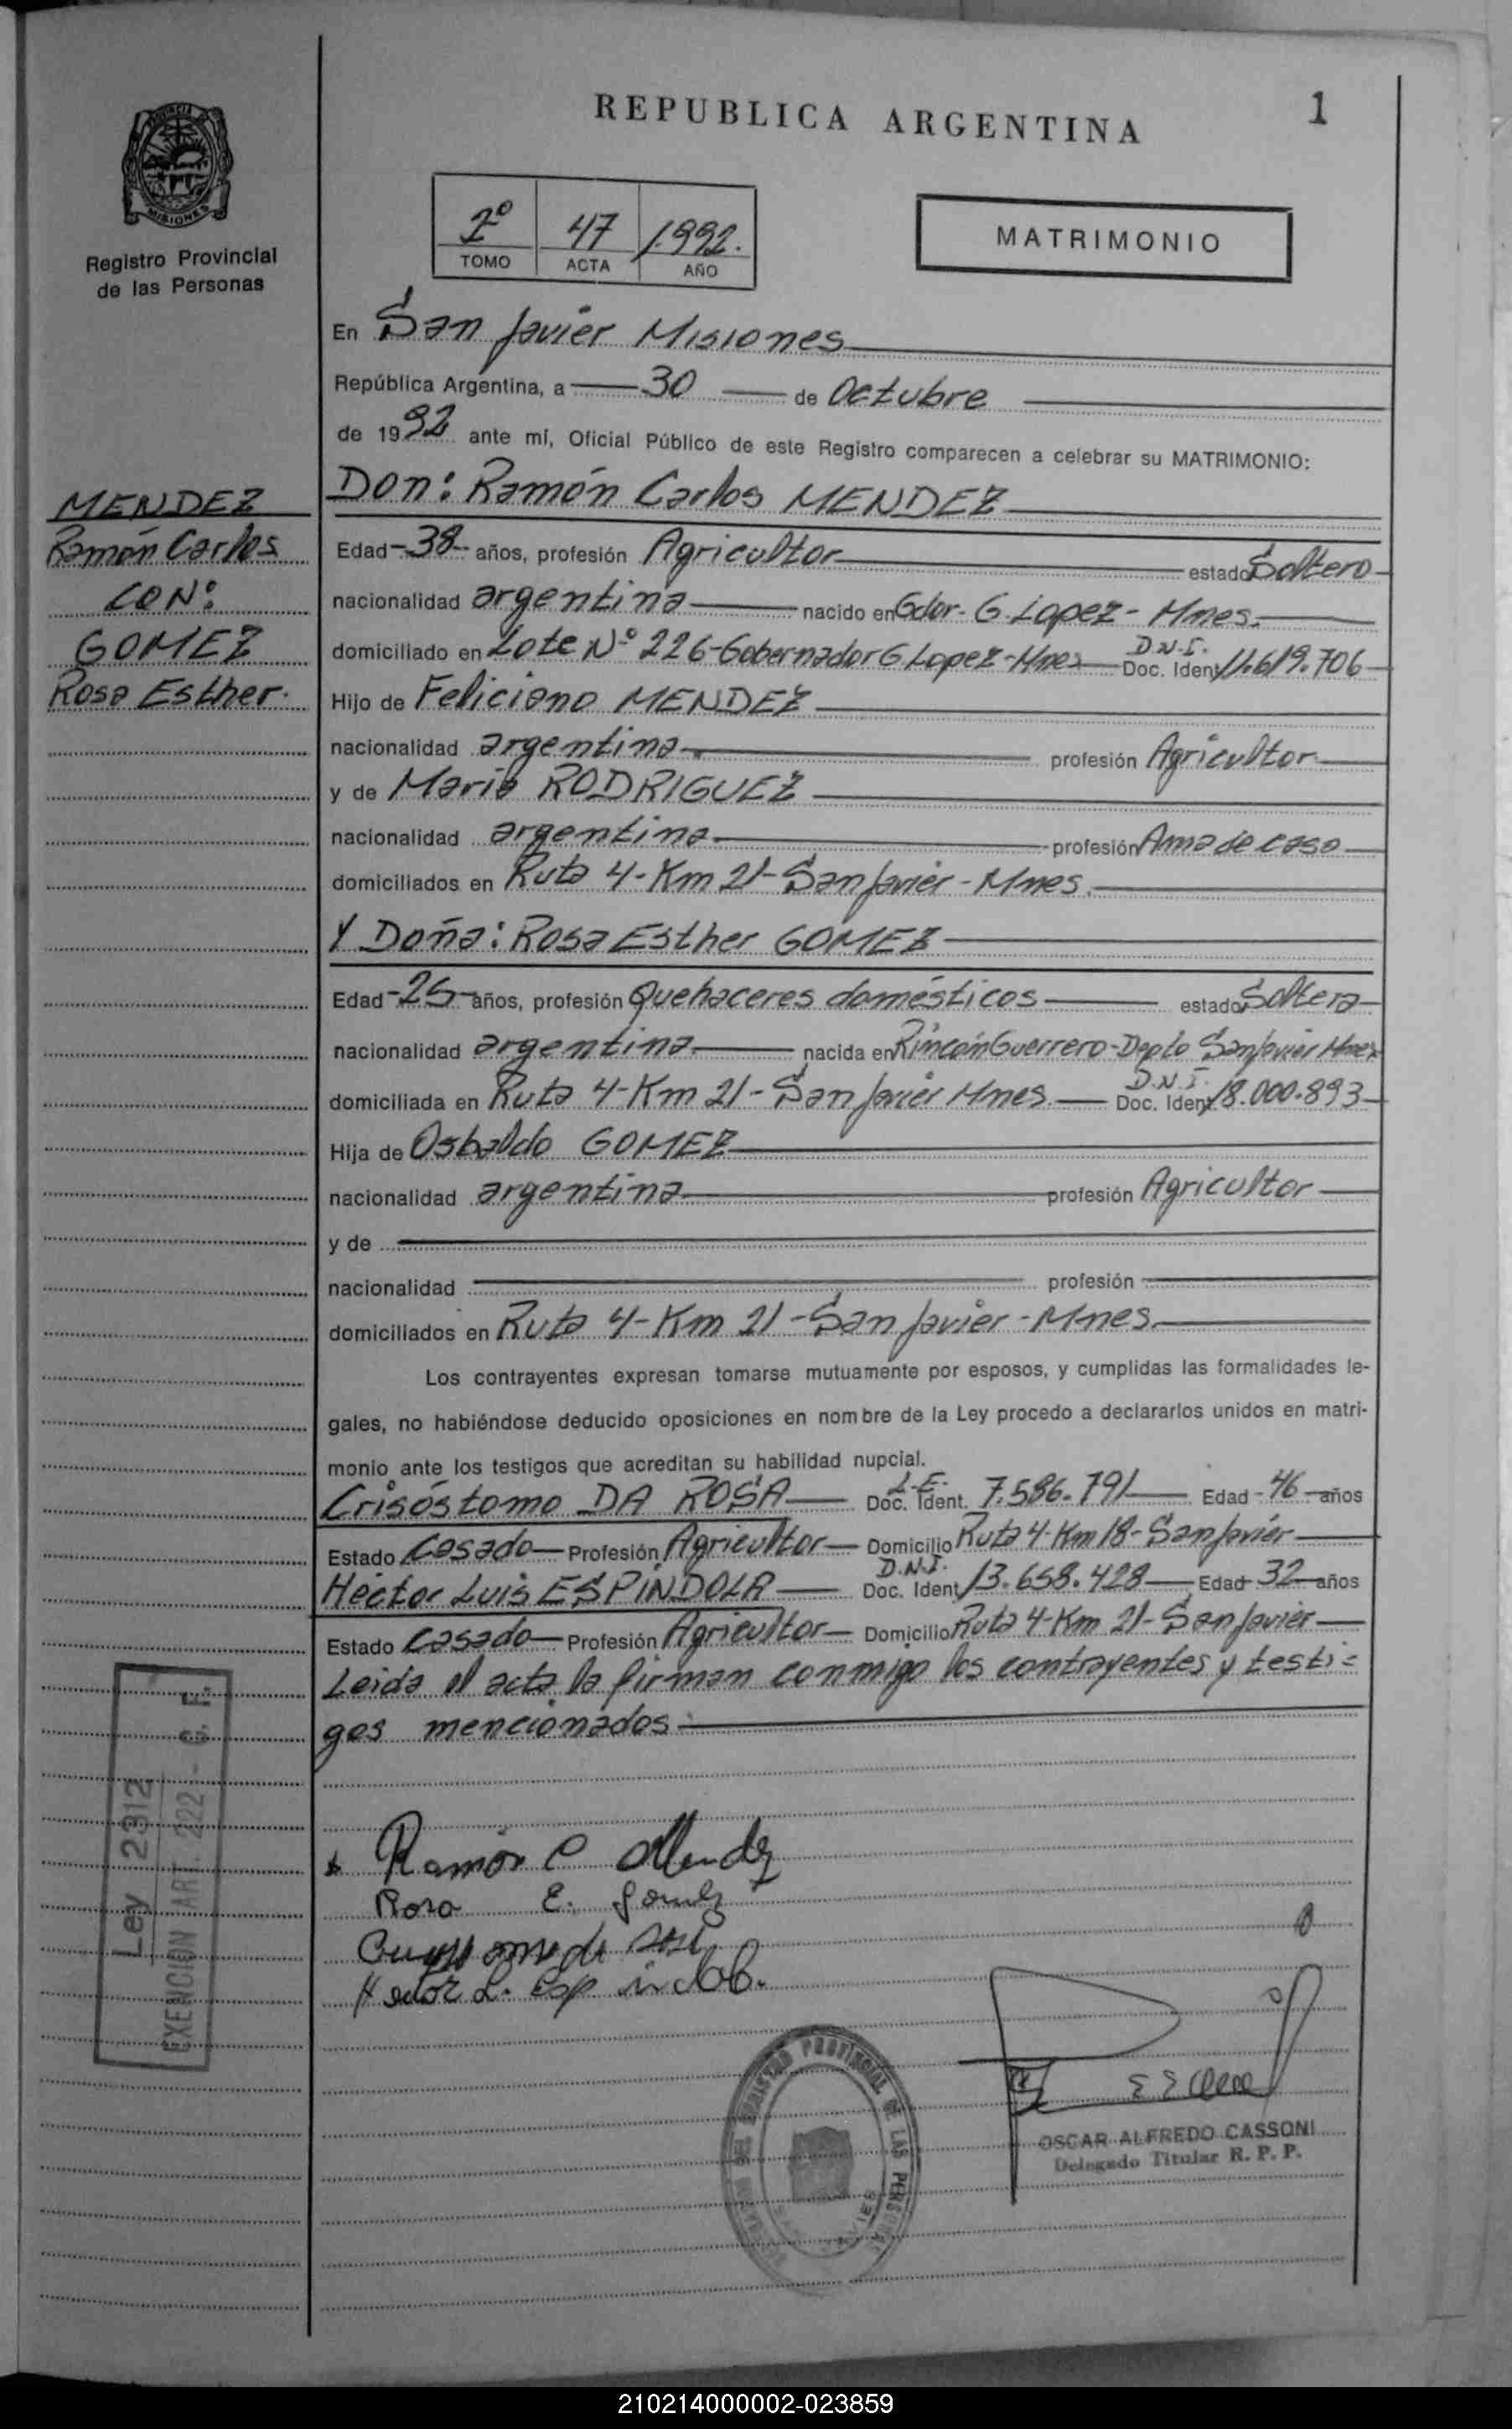 REPUBLICA ARGENTINA
1
MISIONES
Registro Provincial
de las Personas
2º 47 1992.
TOMO ACTA AÑO
MATRIMONIO
En San Javier Misiones
República Argentina, a 30 de Octubre
de 1992 ante mí, Oficial Público de este Registro comparecen a celebrar su MATRIMONIO:
MENDEZ
Ramón Carlos
CON:
GOMEZ
Rosa Esther.
Don: Ramón Carlos MENDEZ
Edad-38-años, profesión Agricultor estado Soltero
nacionalidad argentina nacido en Gdor- G. Lopez- Mnes.
domiciliado en Lote Nº 226-Gobernador G Lopez-Mnes D.N.I. Doc. Ident. 11.619.706
Hijo de Feliciano MENDEZ
nacionalidad argentina profesión Agricultor
y de Maria RODRIGUEZ
nacionalidad argentina profesión Ama de casa
domiciliados en Ruta 4-Km 21-San Javier-Mnes.
Y Doña: Rosa Esther GOMEZ
Edad-25-años, profesión Quehaceres domésticos estado Soltera
nacionalidad argentina nacida en Rincón Guerrero-Depto San Javier Mnes
domiciliada en Ruta 4-Km 21-San Javier Mnes. D.N.I. Doc. Ident. 18.000.893
Hija de Osbaldo GOMEZ
nacionalidad argentina profesión Agricultor
y de
nacionalidad profesión
domiciliados en Ruta 4-Km 21-San Javier-Mnes.
Los contrayentes expresan tomarse mutuamente por esposos, y cumplidas las formalidades le-
gales, no habiéndose deducido oposiciones en nombre de la Ley procedo a declararlos unidos en matri-
monio ante los testigos que acreditan su habilidad nupcial.
Crisóstomo DA ROSA L.E. Doc. Ident. 7.586.791 Edad-46-años
Estado Casado Profesión Agricultor Domicilio Ruta 4-Km 18-San Javier
Héctor Luis ESPÍNDOLA D.N.I. Doc. Ident. 13.658.428 Edad 32 años
Estado Casado Profesión Agricultor Domicilio Ruta 4-Km 21-San Javier
Leida el acta la firman conmigo los contrayentes y testi=
gos mencionados
Ramón C Mendez
Rosa E. Gomez
Hector L. Espindola.
Ley 2312
EXENCION ART. 222 - C. F.
REGISTRO PROVINCIAL DE LAS PERSONAS
OSCAR ALFREDO CASSONI
Delegado Titular R. P. P.
210214000002-023859